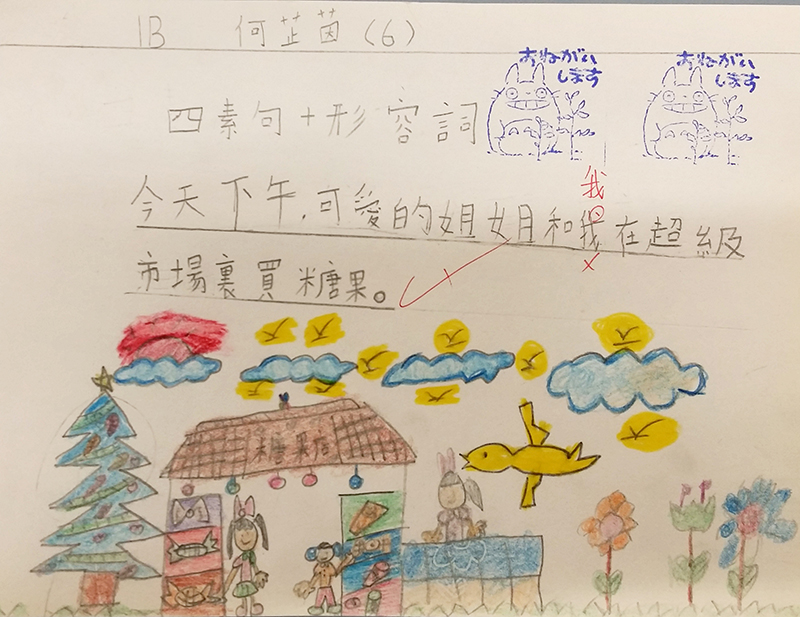 1B 何芷茵(6)
おねがい
します
おねがい
します
四素句+形容詞
我
今天下午,可愛的姐姐和我在超級
市場裏買糖果。
糖果店